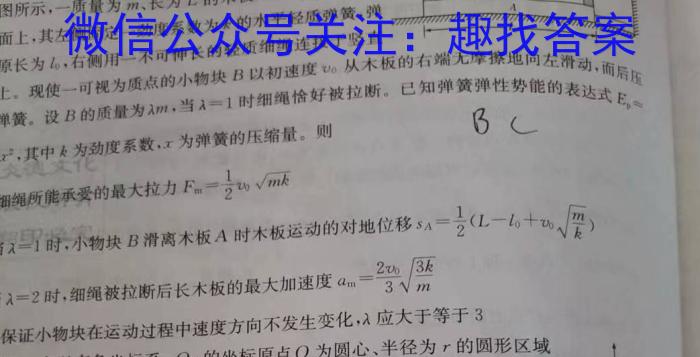 图所示,一质量为 m、长为 L 的木
面上,其左
的水平轻质弹簧,弹
微信公众号关注：趣找答案
原长为 l₀,右侧用一不可伸长的轻质细绳连接
上。现使一可视为质点的小物块 B 以初速度 v₀ 从木板的右端无摩擦地向左滑动,而后压
弹簧。设 B 的质量为 λm,当 λ=1 时细绳恰好被拉断。已知弹簧弹性势能的表达式 Eₚ=
x²,其中 k 为劲度系数,x 为弹簧的压缩量。则
B C
细绳所能承受的最大拉力 Fₘ=1/2 v₀√mk
当 λ=1 时,小物块 B 滑离木板 A 时木板运动的对地位移 s_A=1/2(L-l₀+v₀√(m/k))
λ=2 时,细绳被拉断后长木板的最大加速度 aₘ=2v₀/3 √(3k/m)
保证小物块在运动过程中速度方向不发生变化,λ 应大于等于 3
的坐标原点 O 为圆心、半径为 r 的圆形区域